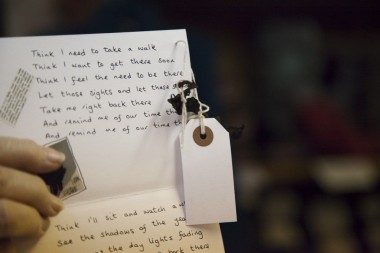 Think I need to take a walk
Think I want to get there soon
Think I feel the need to be there
Let those sights and let these
Take me right back there
And remind me of our time th
And remind me of our time th
Think I'll sit and watch a
See the shadows of the
the day lights fading
back there